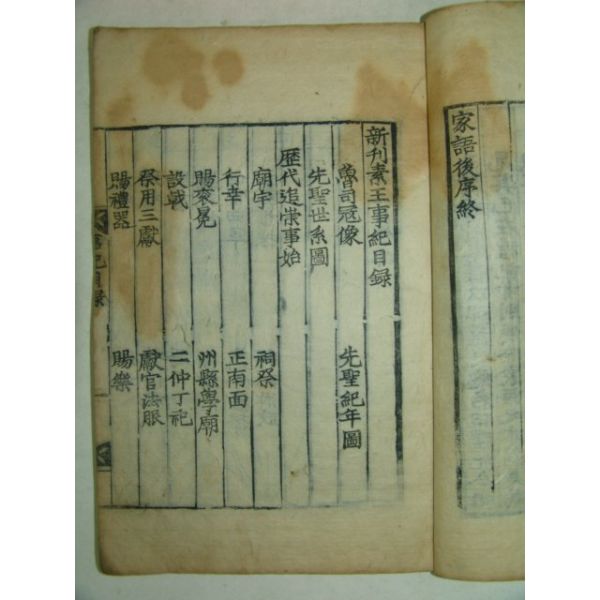 家語後序終
新刊素王事紀目録
魯司冦像 先聖紀年圖
先聖世系圖
歷代追崇事始
廟宇 祠祭
行幸 正南面
賜袞冕 州縣學廟
設戟 二仲丁祀
祭用三獻 獻官法服
賜禮器 賜樂
事紀目録